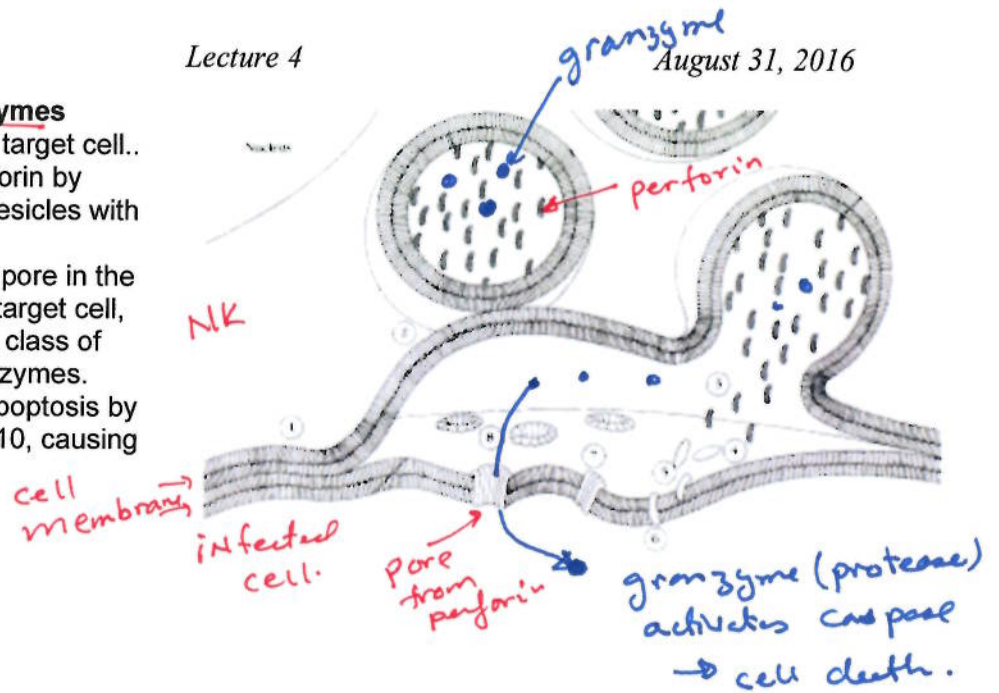 Lecture 4
August 31, 2016
ymes
target cell..
orin by
esicles with
pore in the
target cell,
class of
zymes.
poptosis by
10, causing
granzyme
perforin
NK
2
3
1
8
7
5
4
6
cell
membrane
infected
cell.
pore
from
perforin
granzyme (protease)
activates caspase
→ cell death.